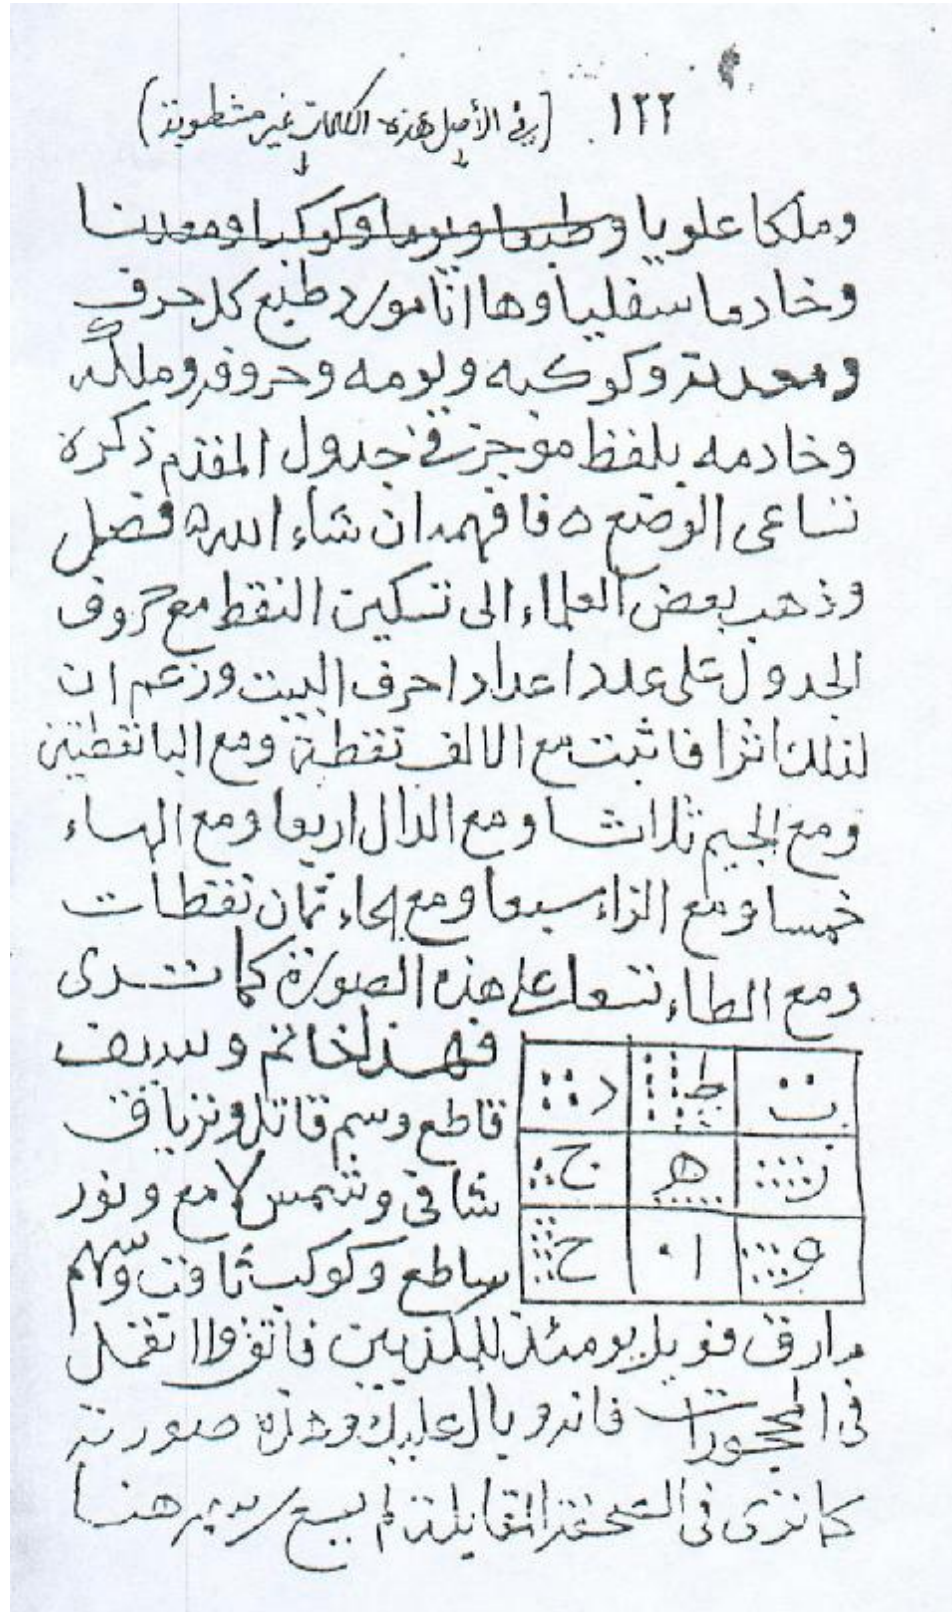 ١٢٢ (في الأصل هذه الكلمات غير مشطوبة)
وملكا علويا وطبعا ويوما وكوكبا ومعدنا
وخادما سفليا وها انا مورد طبع كل حرف
ومعدنه وكوكبه ويومه وحروفه وملكه
وخادمه بلفظ موجز في جدول المقدم ذكره
الوضع ه فافهمه ان شاء الله ه فصل
وذهب بعض العلماء الى تسكين النقط مع حروف
الجدول على عدد اعداد احرف البيت وزعم ان
لذلك اثرا فاثبت مع الالف نقطة ومع البا نقطتين
ومع الجيم ثلاثا ومع الدال اربعا ومع الهاء
خمسا ومع الزاء سبعا ومع الحاء ثمان نقطات
ومع الطاء تسعا على هذه الصورة كما ترى
فهذا خاتم وسيف
قاطع وسم قاتل وترياق
شافى وشمس لامع ونور
ساطع وكوكب ثاقب وسهم
مارق فويل يومئذ للمكذبين فاتق ولا تفعل
فى المحجورات فانه وبال عليك وهذه صورته
كما ترى فى الصحفة المقابلة لم يسع رسمه هنا
ب ط د
ز ه ج
و ا ح